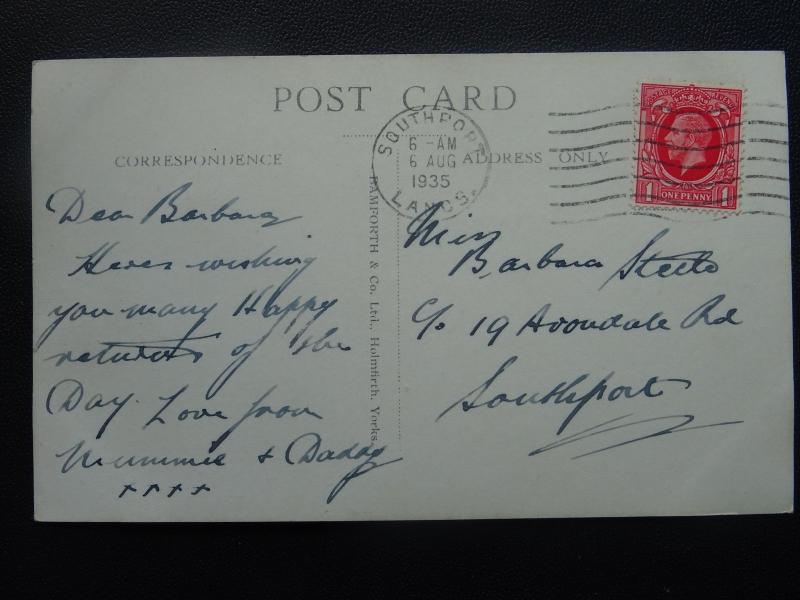 POST CARD
CORRESPONDENCE
ADDRESS ONLY
SOUTHPORT
6 - AM
6 AUG
1935
LANCS.
1 ONE PENNY 1
BAMFORTH & Co. Ltd., Holmfirth, Yorks.
Dear Barbara
Heres wishing
you many Happy
returns of the
Day. Love from
Mummie & Daddy
x x x x
Miss
Barbara
c/o 19 Avondale Rd
Southport